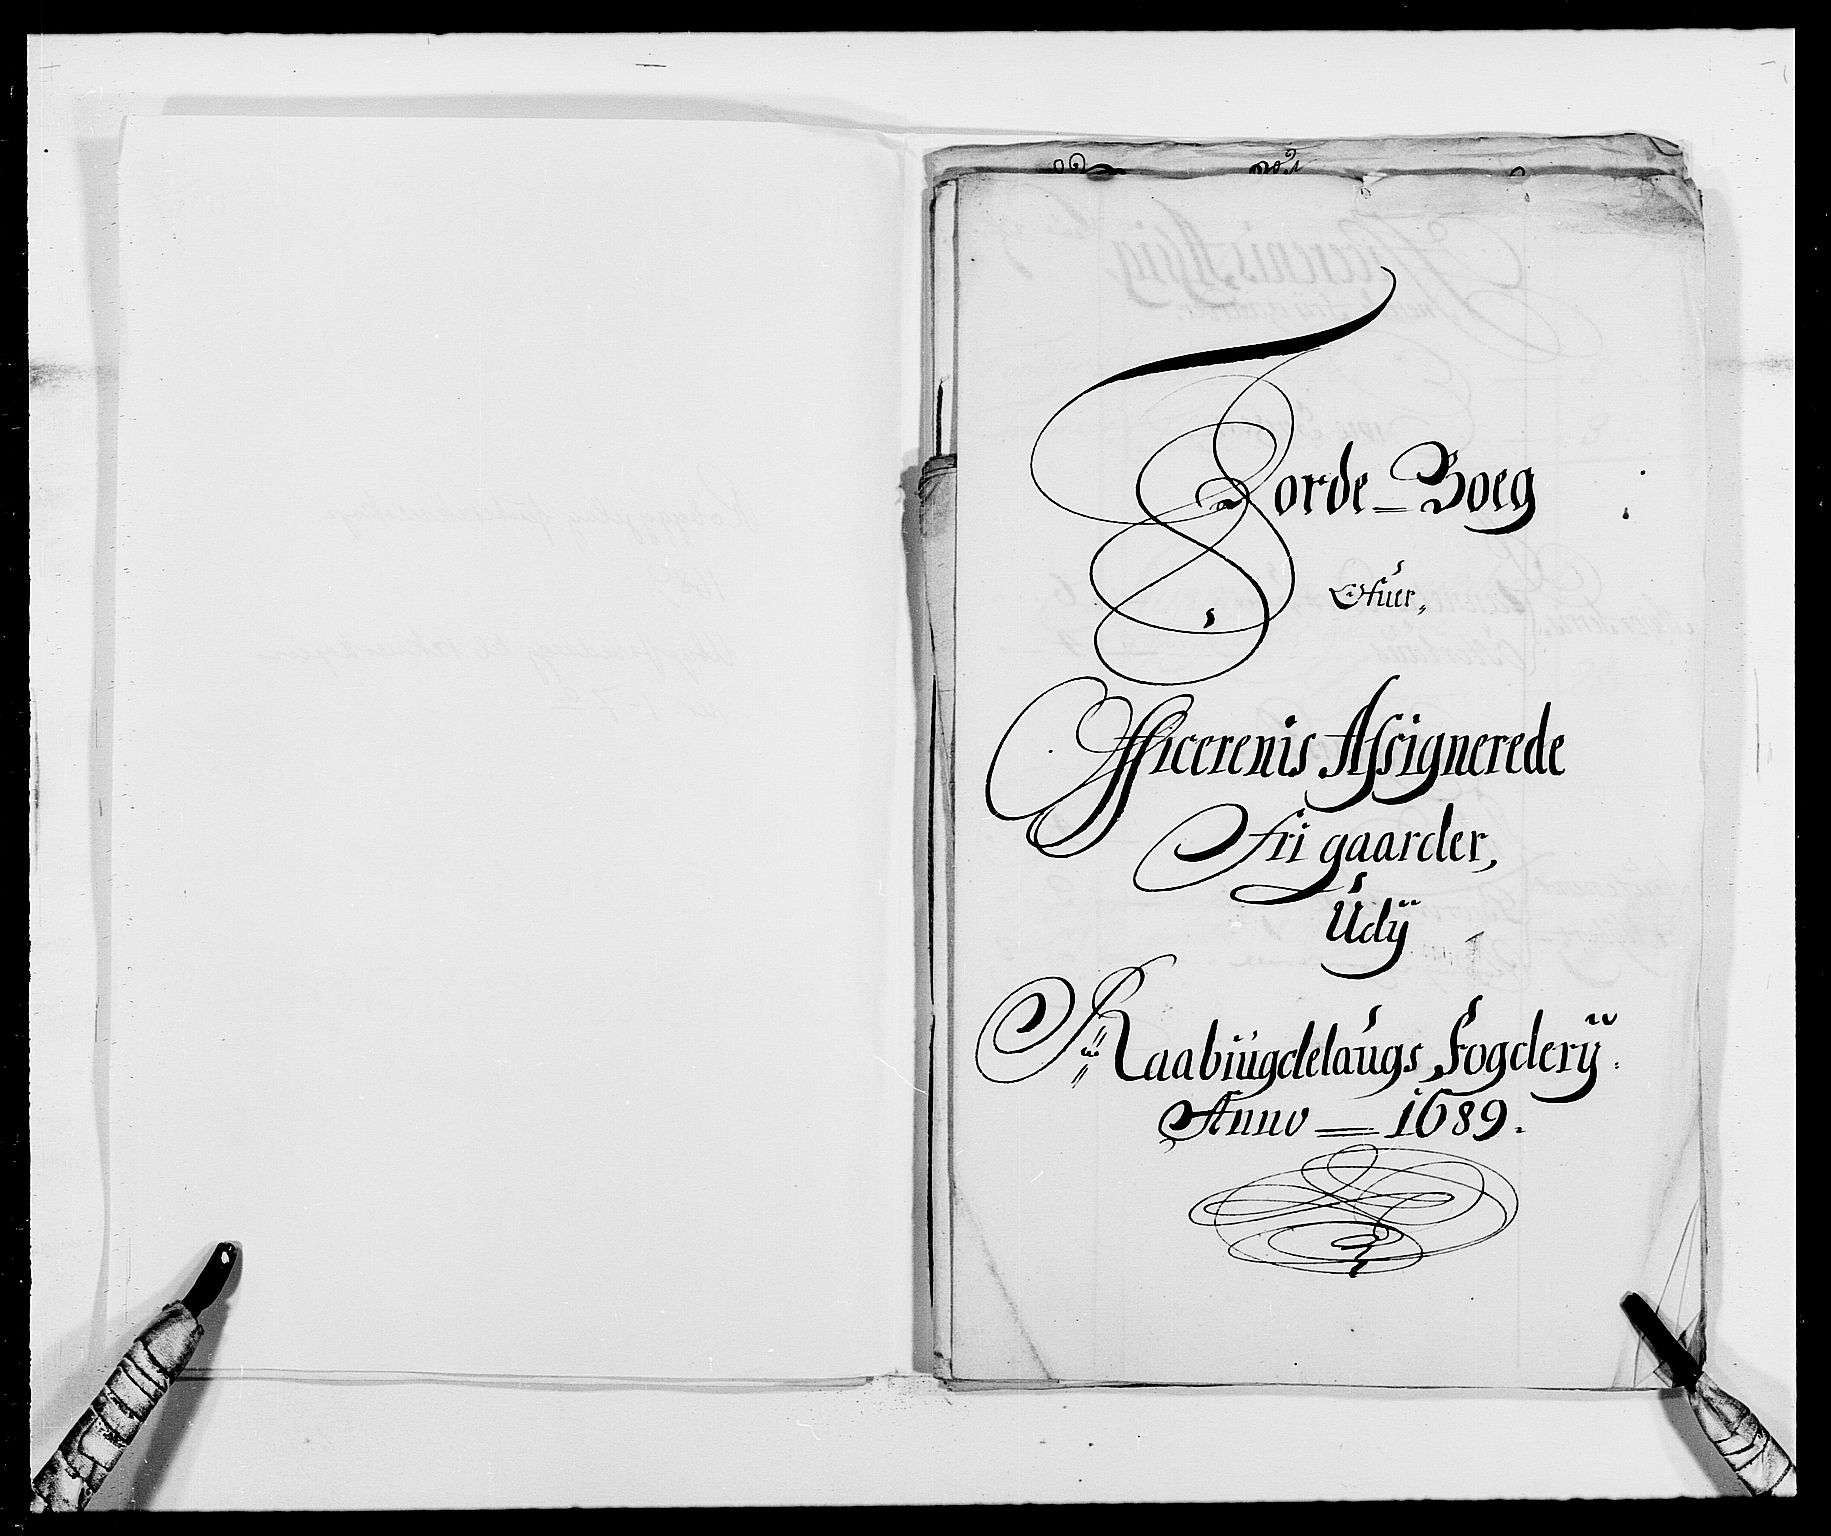 Jorde-Boeg
Ofuer,
Officerenis Assignerede
Fri gaarder,
Udÿ
Raabÿugdelaugs Fogderÿ.
Anno — 1689.